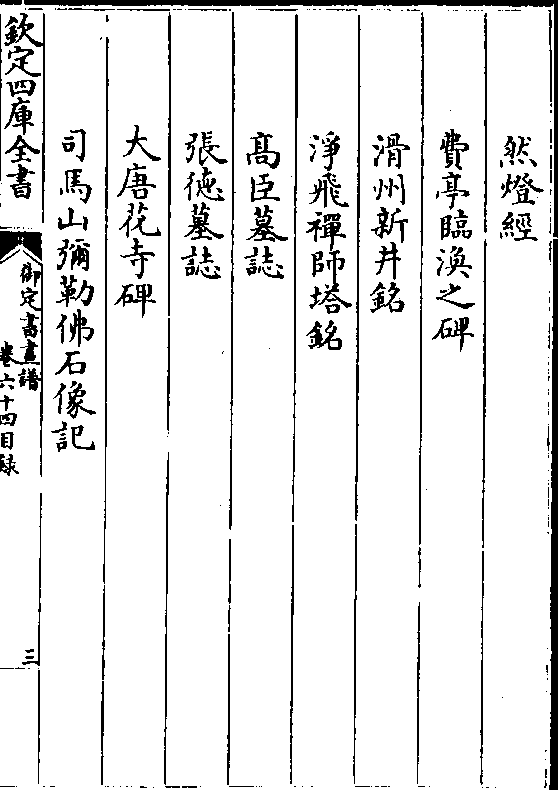 然燈經
費亭臨渙之碑
滑州新井銘
淨飛禪師塔銘
髙臣墓誌
張徳墓誌
大唐花寺碑
司馬山彌勒佛石像記
欽定四庫全書
御定書畫譜
卷六十四目録
三